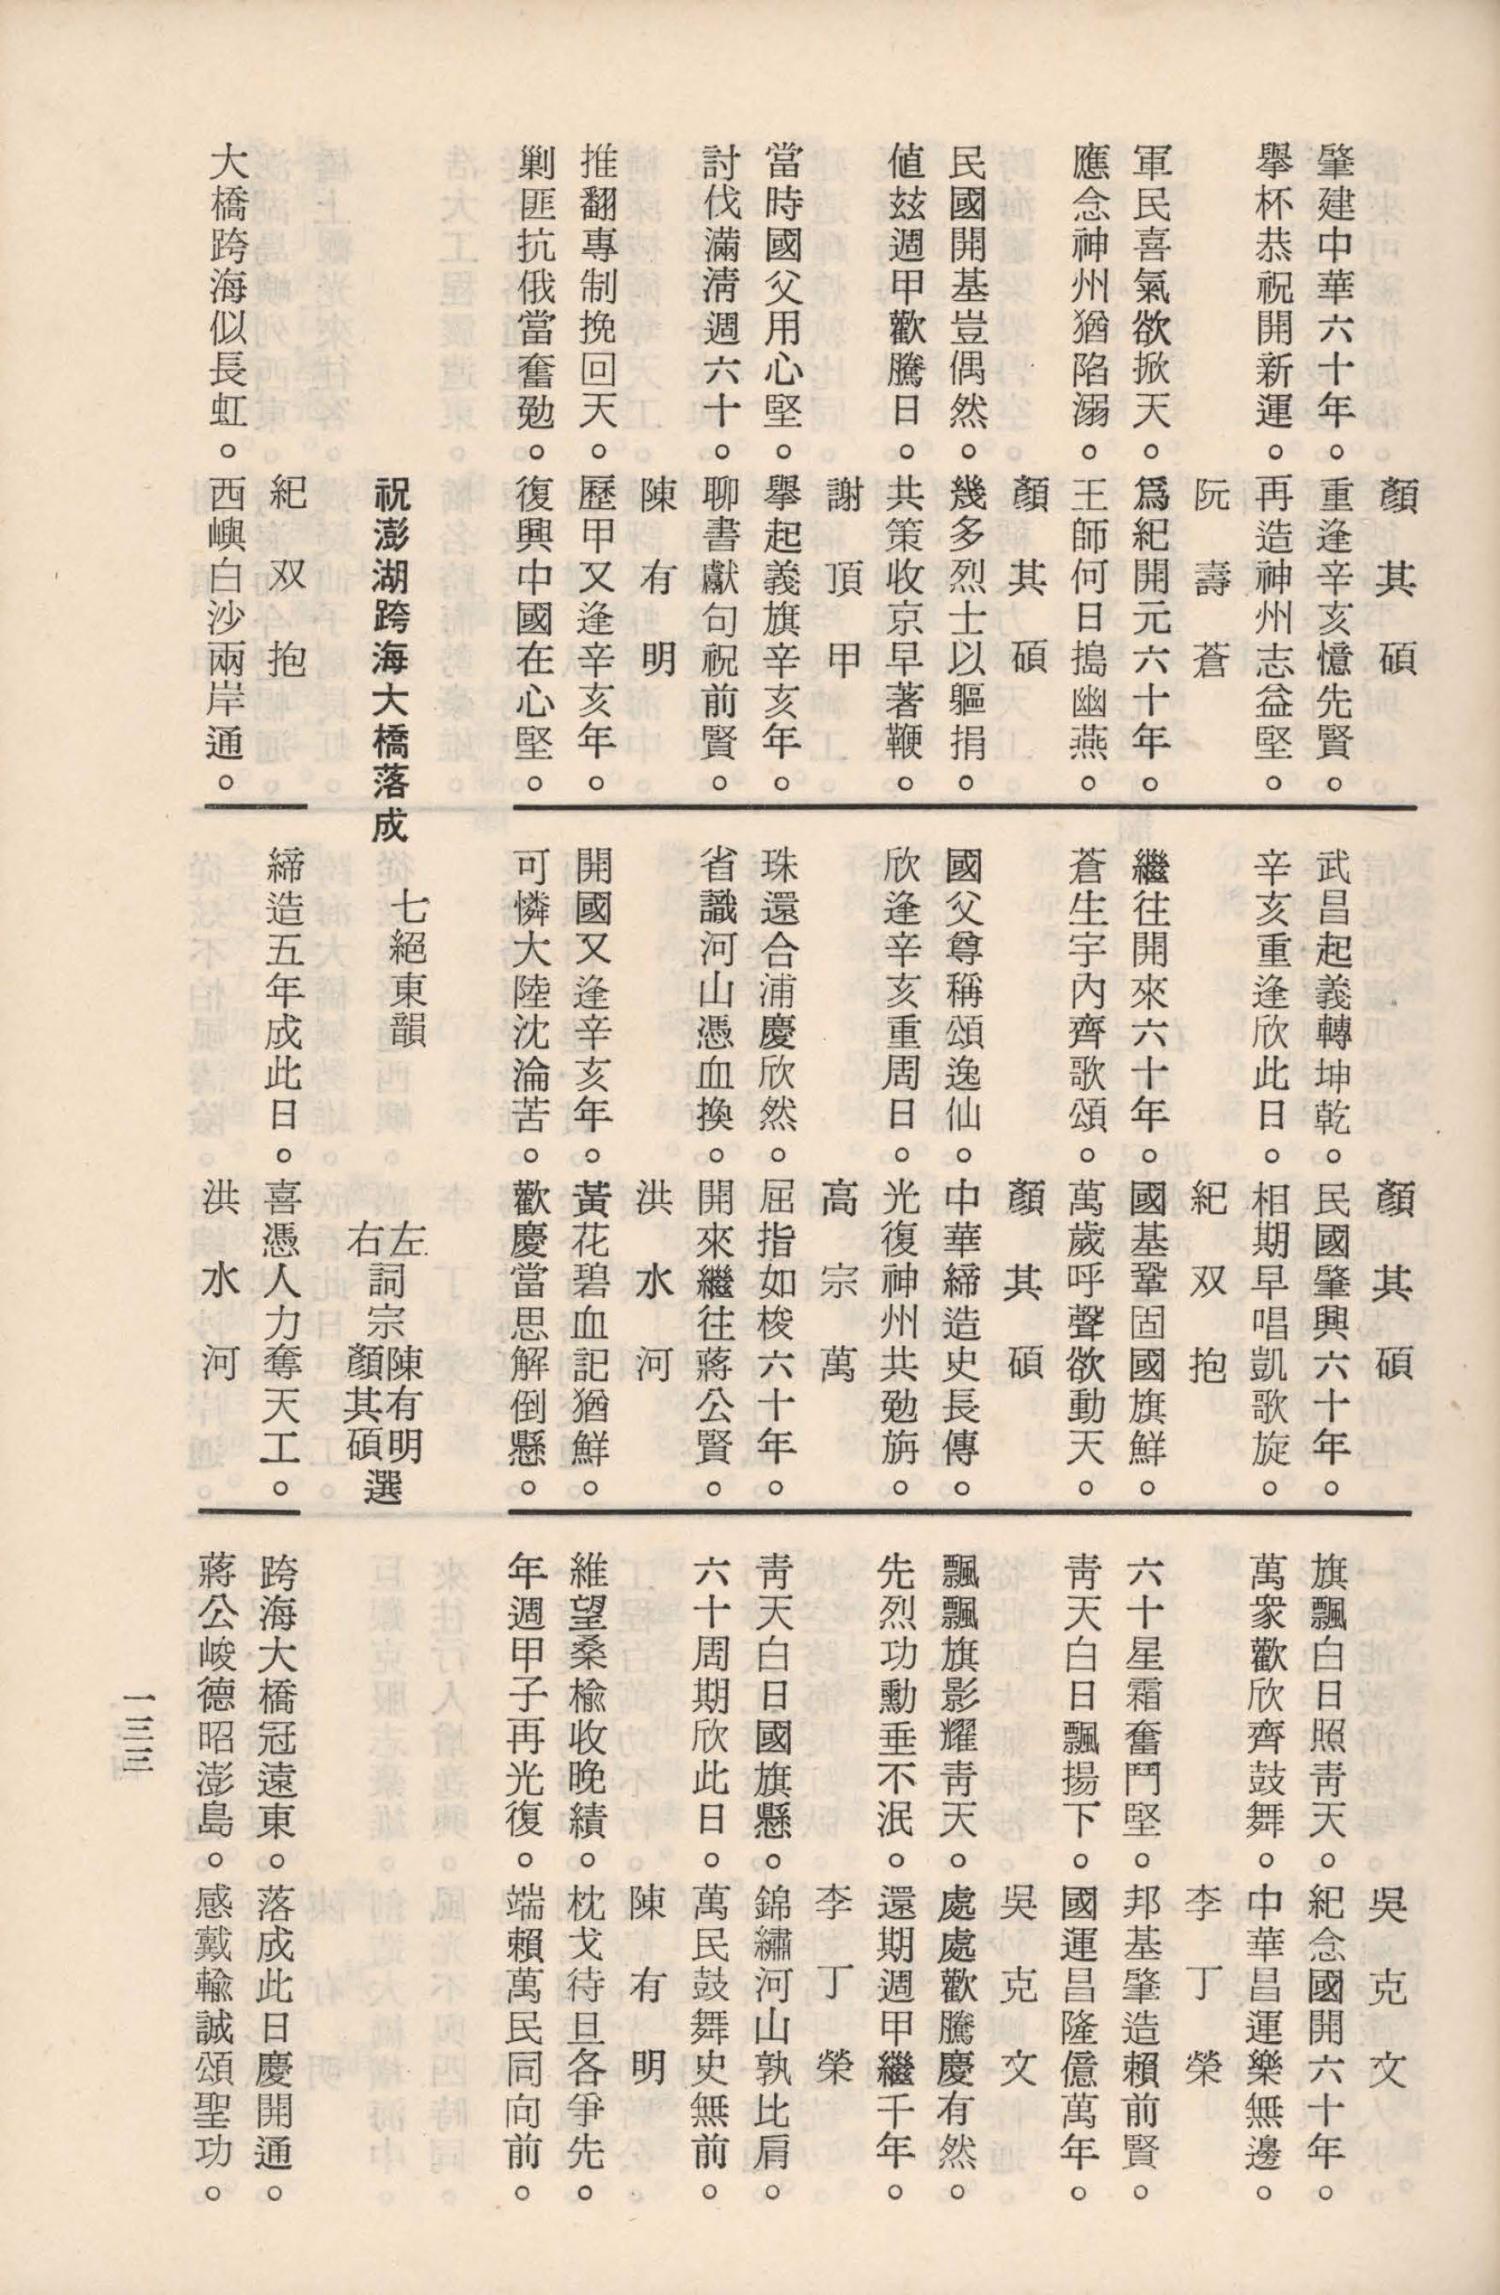 顏其碩
肇建中華六十年。重逢辛亥憶先賢。
擧杯恭祝開新運。再造神州志益堅。
阮壽蒼
軍民喜氣欲掀天。爲紀開元六十年。
應念神州猶陷溺。王師何日搗幽燕。
顏其碩
民國開基豈偶然。幾多烈士以軀捐。
値玆週甲歡騰日。共策收京早著鞭。
謝頂甲
當時國父用心堅。擧起義旗辛亥年。
討伐滿淸週六十。聊書獻句祝前賢。
陳有明
推翻專制挽回天。歷甲又逢辛亥年。
剿匪抗俄當奮勉。復興中國在心堅。
顏其碩
武昌起義轉坤乾。民國肇興六十年。
辛亥重逢欣此日。相期早唱凱歌旋。
紀双抱
繼往開來六十年。國基鞏固國旗鮮。
蒼生宇內齊歌頌。萬歲呼聲欲動天。
顏其碩
國父尊稱頌逸仙。中華締造史長傳。
欣逢辛亥重周日。光復神州共勉旃。
高宗萬
珠還合浦慶欣然。屈指如梭六十年。
省識河山憑血換。開來繼往蔣公賢。
洪水河
開國又逢辛亥年。黃花碧血記猶鮮。
可憐大陸沈淪苦。歡慶當思解倒懸。
吳克文
旗飄白日照靑天。紀念國開六十年。
萬衆歡欣齊鼓舞。中華昌運樂無邊。
李丁榮
六十星霜奮鬥堅。邦基肇造賴前賢。
靑天白日飄揚下。國運昌隆億萬年。
吳克文
飄飄旗影耀靑天。處處歡騰慶有然。
先烈功勳垂不泯。還期週甲繼千年。
李丁榮
靑天白日國旗懸。錦繡河山孰比肩。
六十周期欣此日。萬民鼓舞史無前。
陳有明
維望桑楡收晚績。枕戈待旦各爭先。
年週甲子再光復。端賴萬民同向前。
祝澎湖跨海大橋落成　七絕東韻　左右詞宗陳有明顏其碩選
紀双抱
大橋跨海似長虹。西嶼白沙兩岸通。
締造五年成此日。喜憑人力奪天工。
洪水河
跨海大橋冠遠東。落成此日慶開通。
蔣公峻德昭澎島。感戴輸誠頌聖功。
一三三